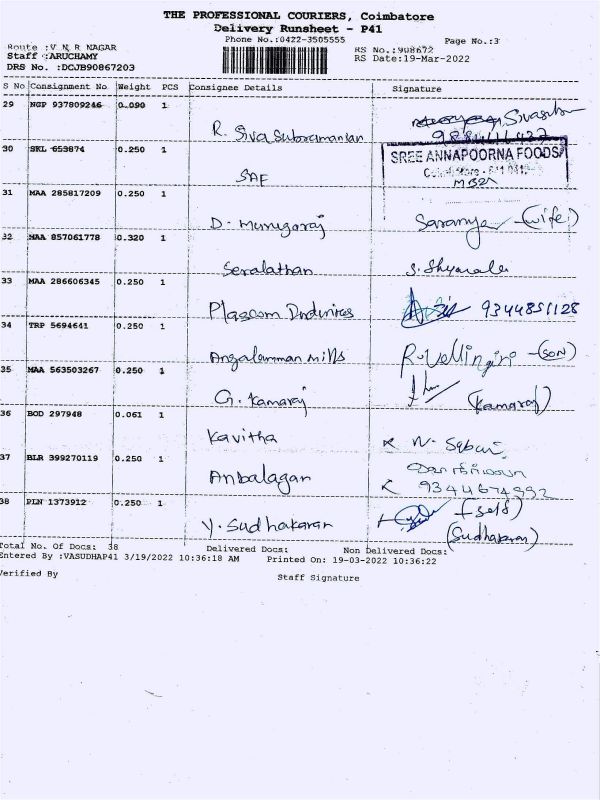 THE PROFESSIONAL COURIERS, Coimbatore
Delivery Runsheet - P41
Phone No.:0422-3505555
Page No.:3
Route :V N R NAGAR
RS No.:908672
Staff :ARUCHAMY
RS Date:19-Mar-2022
DRS No. :DCJB90867203
S No Consignment No Weight PCS Consignee Details Signature
29 NGP 937809246 0.090 1
R. Siva Subramanian
30 SKL 653874 0.250 1
SREE ANNAPOORNA FOODS
SAF
31 MAA 285817209 0.250 1
D. Murugaraj Saranya (wife)
32 MAA 857061778 0.320 1
Seralathan S. Shyamala
33 MAA 286606345 0.250 1
9344851128
34 TRP 5694641 0.250 1
Angalamman mills R. Vellingiri - (SON)
35 MAA 563503267 0.250 1
G. Kamaraj (Kamaraj)
36 BOD 297948 0.061 1
Kavitha
37 BLR 399270119 0.250 1
Anbalagan
38 PLN 1373912 0.250 1
(self)
V. Sudhakaran (Sudhakaran)
Total No. Of Docs: 38 Delivered Docs: Non Delivered Docs:
Entered By :VASUDHAP41 3/19/2022 10:36:18 AM Printed On: 19-03-2022 10:36:22
Verified By Staff Signature